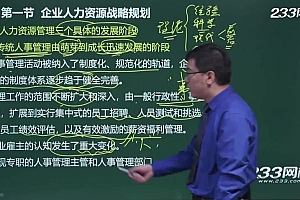 233网校
第一节 企业人力资源战略规划
人力资源管理三个具体的发展阶段
传统人事管理由萌芽到成长迅速发展的阶段
事管理活动被纳入了制度化、规范化的轨道，企
的制度体系逐步趋于健全完善。
理工作的范围不断扩大和深入，由一般行政性
，扩展到实行集中式的员工招聘、人员测试和挑选
员工绩效评估，以及有效激励的薪资福利管理。
业雇主的认知发生了重大变化，
现专职的人事管理主管和人事管理部门
233网校